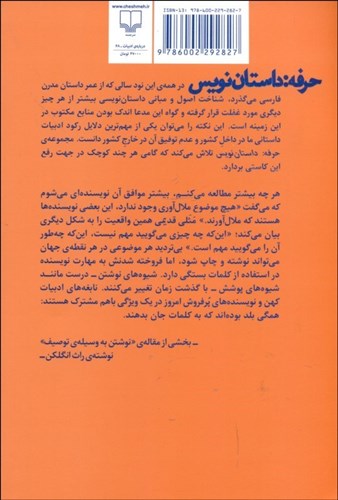 ISBN-13: 978-600-229-282-7
9 786002 292827
www.cheshmeh.ir
۲۷۰۰۰ تومان
حرفه: داستان‌نویس در همه‌ی این نود سالی که از عمر داستان مدرن
فارسی می‌گذرد، شناخت اصول و مبانی داستان‌نویسی بیشتر از هر چیز
دیگری مورد غفلت قرار گرفته و گواه این مدعا اندک بودن منابع مکتوب در
این زمینه است. این نکته را می‌توان یکی از مهم‌ترین دلایل رکود ادبیات
داستانی ما در داخل کشور و عدم توفیق آن در خارج کشور دانست. مجموعه‌ی
حرفه: داستان‌نویس تلاش می‌کند که گامی هر چند کوچک در جهت رفع
این کاستی بردارد.
هر چه بیشتر مطالعه می‌کنم، بیشتر موافق آن نویسنده‌ای می‌شوم
که می‌گفت «هیچ موضوع ملال‌آوری وجود ندارد، این بعضی نویسنده‌ها
هستند که ملال‌آورند.» مَثَلی قدیمی همین واقعیت را به شکل دیگری
بیان می‌کند: «این‌که چه چیزی می‌گویید مهم نیست، این‌که چه‌طور
آن را می‌گویید مهم است.» بی‌تردید هر موضوعی در هر نقطه‌ی جهان
می‌تواند نوشته و چاپ شود، اما فروخته شدنش به مهارت نویسنده
در استفاده از کلمات بستگی دارد. شیوه‌های نوشتن ــ درست مانند
شیوه‌های پوشش ــ با گذشت زمان تغییر می‌کنند. نابغه‌های ادبیات
کهن و نویسنده‌های پُرفروش امروز در یک ویژگی باهم مشترک هستند:
همگی بلد بوده‌اند که به کلمات جان بدهند.
ــ بخشی از مقاله‌ی «نوشتن به وسیله‌ی توصیف»
نوشته‌ی راث انگلکن ــ